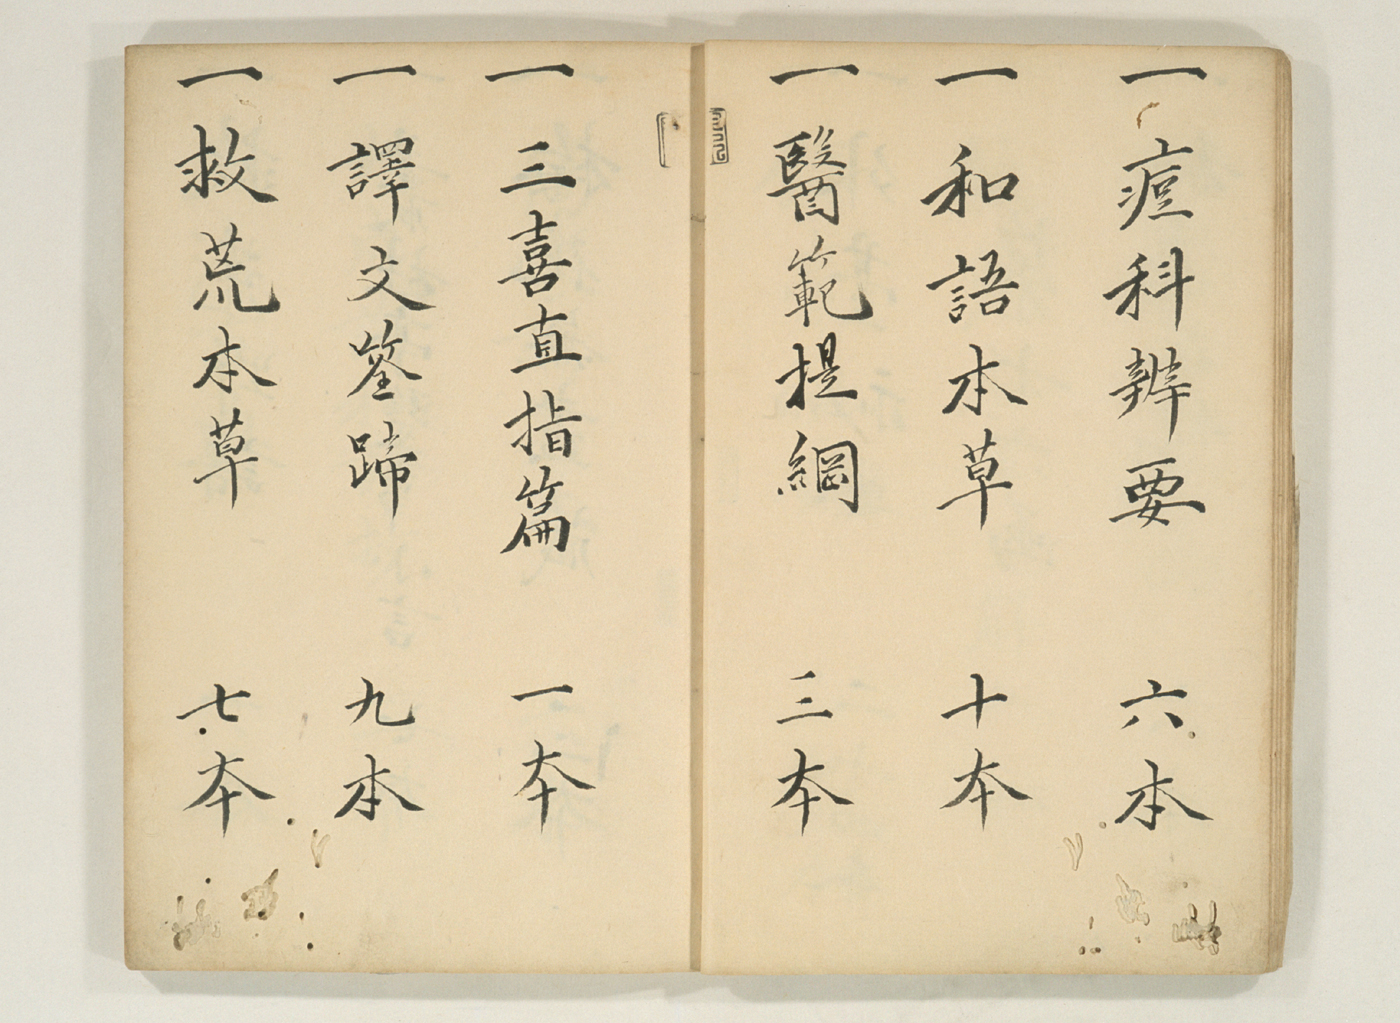 一 痘科辨要 六本
一 和語本草 十本
一 醫範提綱 三本
一 三喜直指篇 一本
一 譯文筌蹄 九本
一 救荒本草 七本